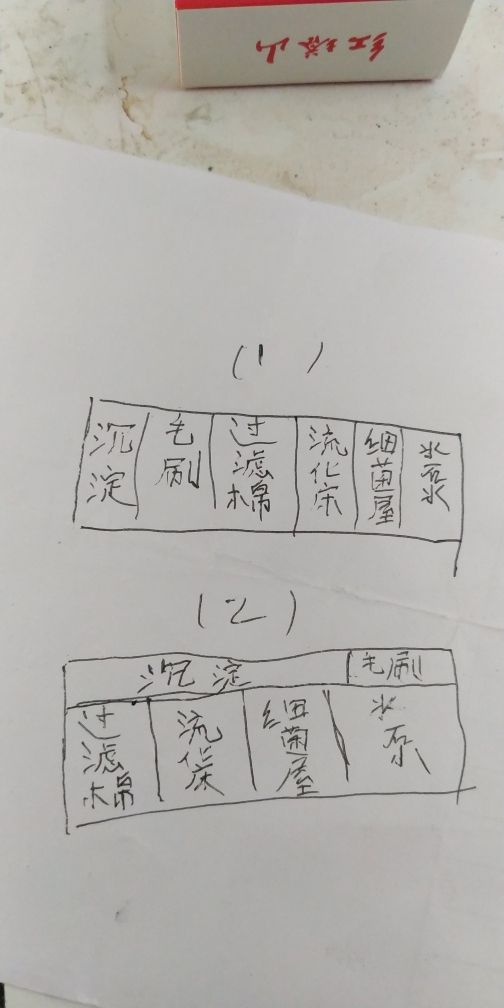 红塔山
(1)
沉淀 毛刷 过滤棉 流化床 细菌屋 水泵
(2)
沉淀 毛刷
过滤棉 流化床 细菌屋 水泵